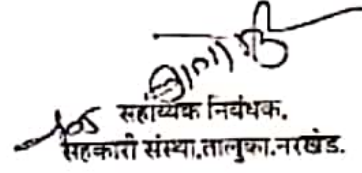 सहाय्यक निबंधक,
सहकारी संस्था,तालुका.नरखेड.